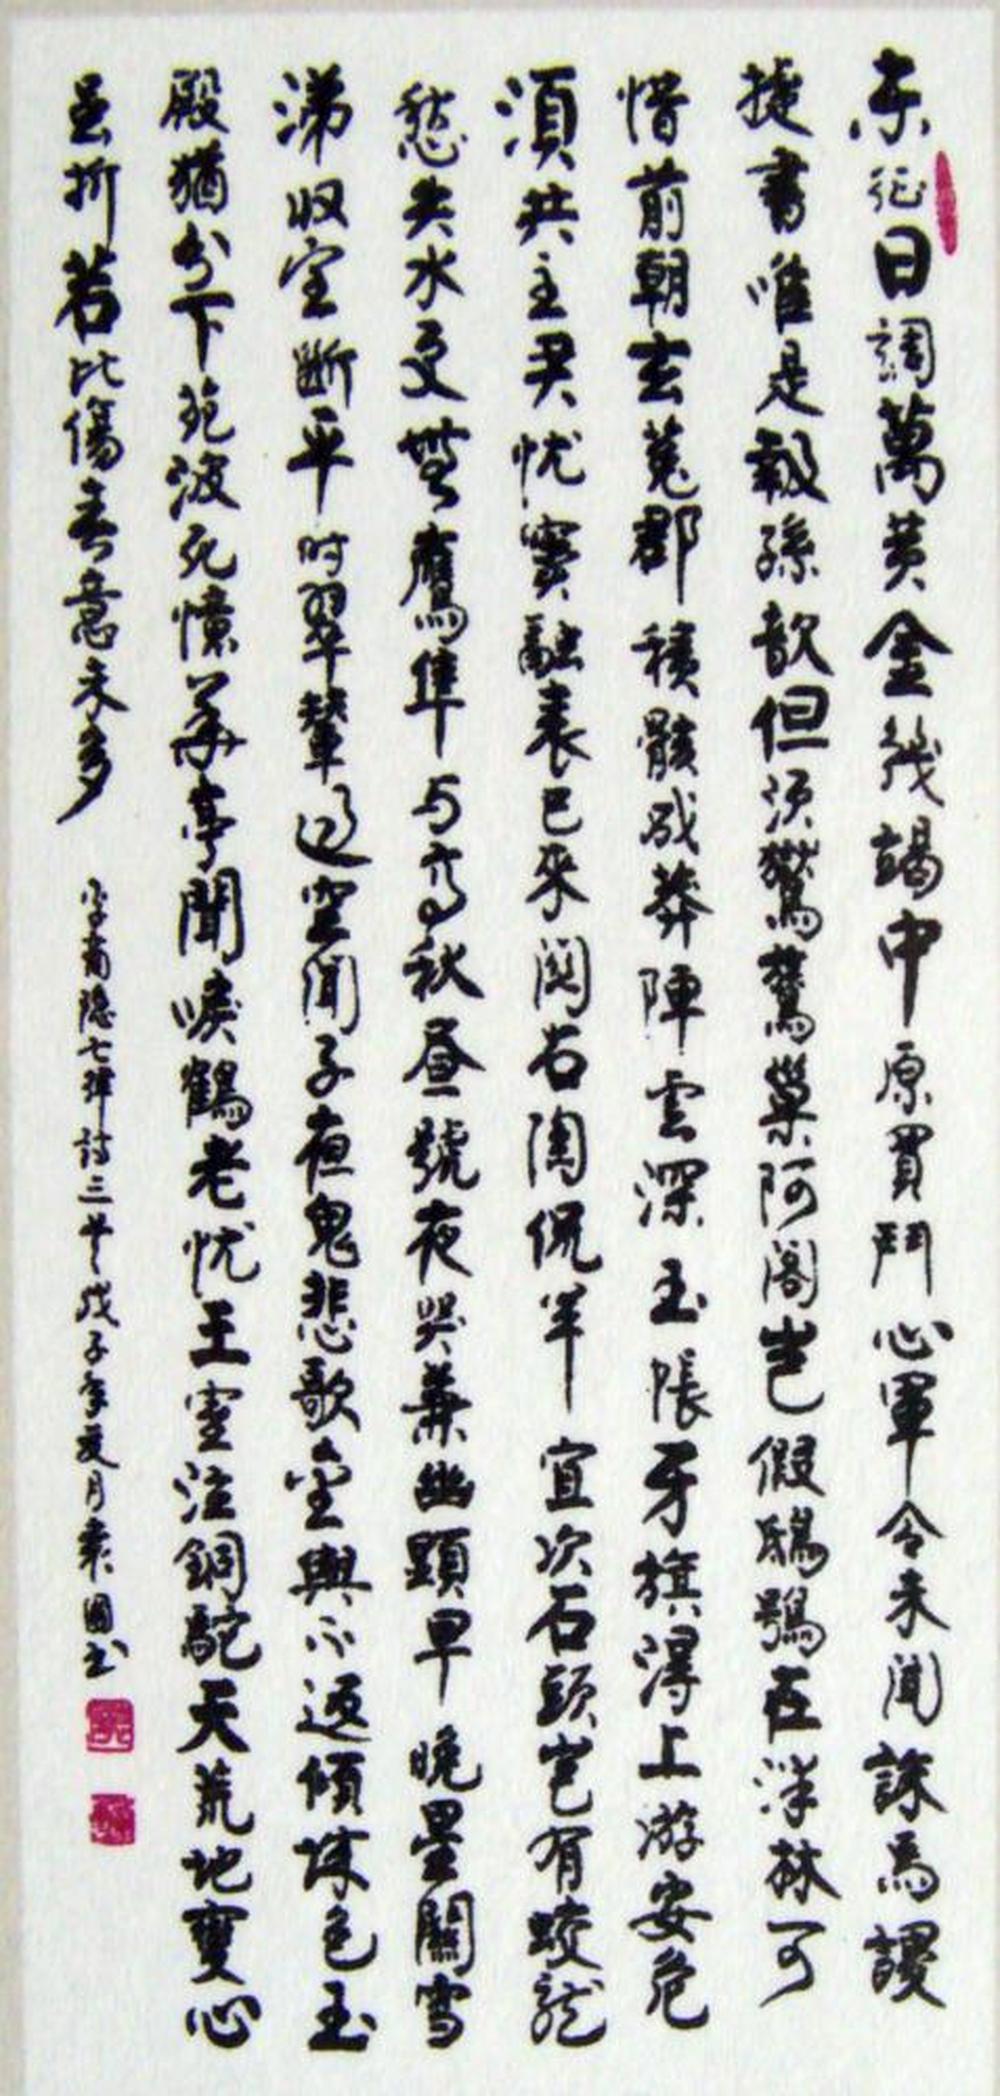 东征日調萬黄金幾竭中原買鬥心軍令未聞誅馬謖
捷書唯是報孫歆但須鸑鷟巢阿閣豈假鴟鴞在泮林可
惜前朝玄菟郡積骸成莽陣雲深玉帳牙旗得上游安危
須共主君忧竇融表已來関右陶侃軍宜次石頭豈有蛟龍
愁失水更無鷹隼与高秋昼號夜哭兼幽顕早晚星關雪
涕収室断平时翠輦过空闻子夜鬼悲歌金輿不返傾城色玉
殿猶分下苑波死憶華亭聞唳鶴老忧王室泣銅駝天荒地變心
虽折若比傷春意未多
李商隐七律詩三首戊子年夏月 國书